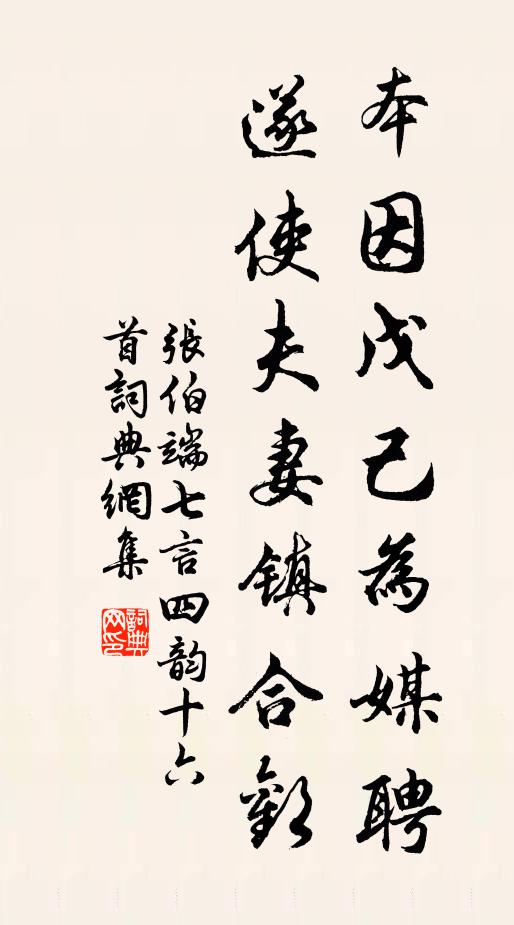 本因戊己為媒聘
遂使夫妻鎮合歡
張伯端七言四韵十六
首詞典網集
詞典
网印